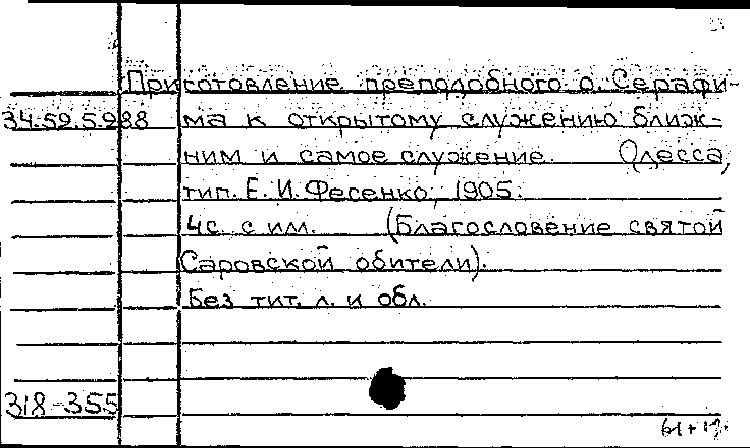 Приготовление преподобного о. Серафи-
34.59.5.988 ма к открытому служению ближ-
ним и самое служение. Одесса,
тип. Е. И. Фесенко, 1905.
4с. с ил. (Благословение святой
Саровской обители).
Без тит. л. и обл.
318-355